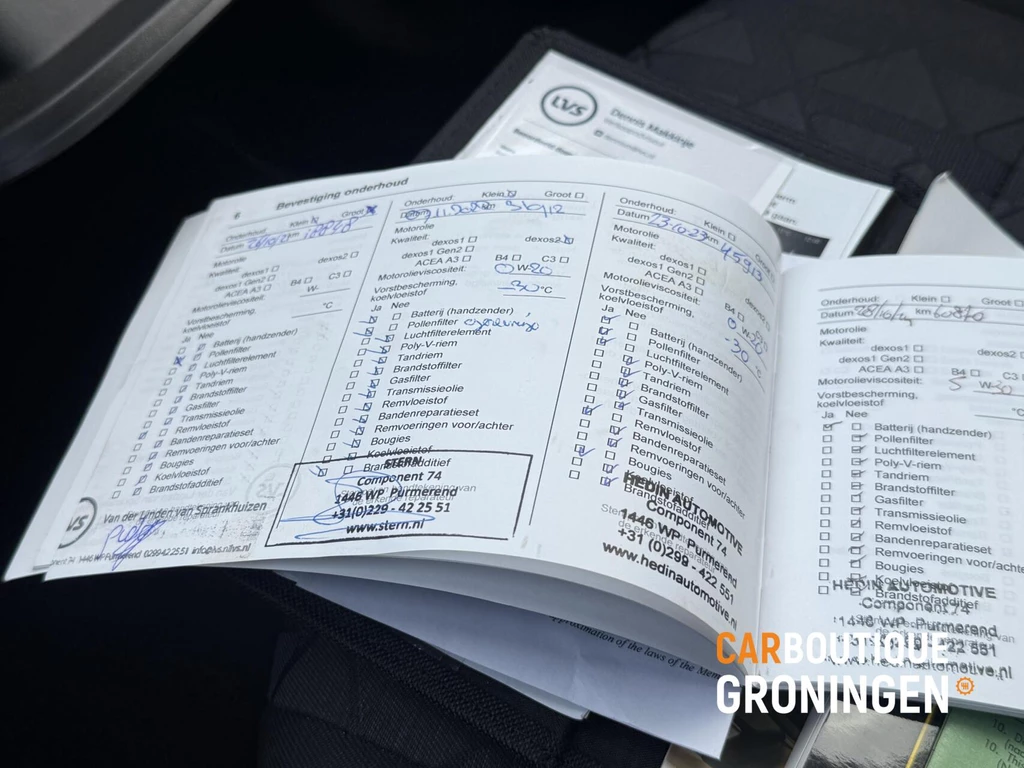 LVS
Dennis Makkinje
6 Bevestiging onderhoud
Onderhoud: Klein Groot
Datum km
Motorolie
Kwaliteit: dexos1 dexos2
dexos1 Gen2
ACEA A3 B4 C3
Motorolieviscositeit: W-
Vorstbescherming, koelvloeistof °C
Ja Nee
Batterij (handzender)
Pollenfilter
Luchtfilterelement
Poly-V-riem
Tandriem
Brandstoffilter
Gasfilter
Transmissieolie
Remvloeistof
Bandenreparatieset
Remvoeringen voor/achter
Bougies
Koelvloeistof
Brandstofadditief
VS
Van der Linden van Sprankhuizen
1446 WP Purmerend 0299 42 25 51 info@lvs.nl
Onderhoud: Klein Groot
Datum km 31912
Motorolie
Kwaliteit: dexos1 dexos2
dexos1 Gen2
ACEA A3 B4 C3
Motorolieviscositeit: 0 W-20
Vorstbescherming, koelvloeistof -30 °C
Ja Nee
Batterij (handzender)
Pollenfilter
Luchtfilterelement
Poly-V-riem
Tandriem
Brandstoffilter
Gasfilter
Transmissieolie
Remvloeistof
Bandenreparatieset
Remvoeringen voor/achter
Bougies
Koelvloeistof
Brandstofadditief
STERN
Component 74
1446 WP Purmerend
+31(0)229 - 42 25 51
www.stern.nl
Onderhoud: Klein
Datum 23-10-23 km 45913
Motorolie
Kwaliteit: dexos1
dexos1 Gen2
ACEA A3 B4
Motorolieviscositeit: 0 W20
Vorstbescherming, koelvloeistof -30 °C
Ja Nee
Batterij (handzender)
Pollenfilter
Luchtfilterelement
Poly-V-riem
Tandriem
Brandstoffilter
Gasfilter
Transmissieolie
Remvloeistof
Bandenreparatieset
Remvoeringen voor/achter
Bougies
Koelvloeistof
Brandstofadditief
HEDIN AUTOMOTIVE
Component 74
1446 WP Purmerend
+31 (0)299 - 422 551
www.hedinautomotive.nl
Onderhoud: Klein Groot
Datum km 60870
Motorolie
Kwaliteit: dexos1 dexos2
dexos1 Gen2
ACEA A3 B4 C3
Motorolieviscositeit: 5 W-30
Vorstbescherming, koelvloeistof °C
Ja Nee
Batterij (handzender)
Pollenfilter
Luchtfilterelement
Poly-V-riem
Tandriem
Brandstoffilter
Gasfilter
Transmissieolie
Remvloeistof
Bandenreparatieset
Remvoeringen voor/achter
Bougies
Koelvloeistof
Brandstofadditief
HEDIN AUTOMOTIVE
Component 74
1446 WP Purmerend
422 551
www.hedinautomotive.nl
approximation of the laws of the Mem
CARBOUTIQUE
GRONINGEN